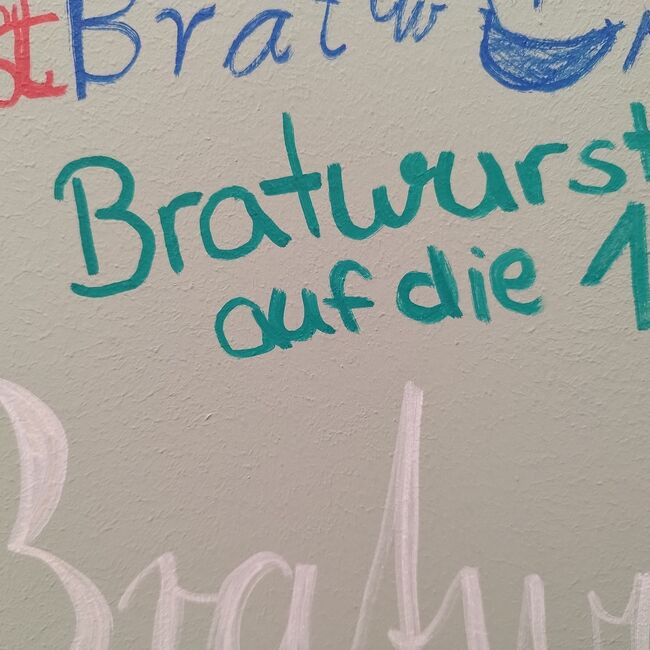 st Bratwur
Bratwurst
auf die 1
Bratwur